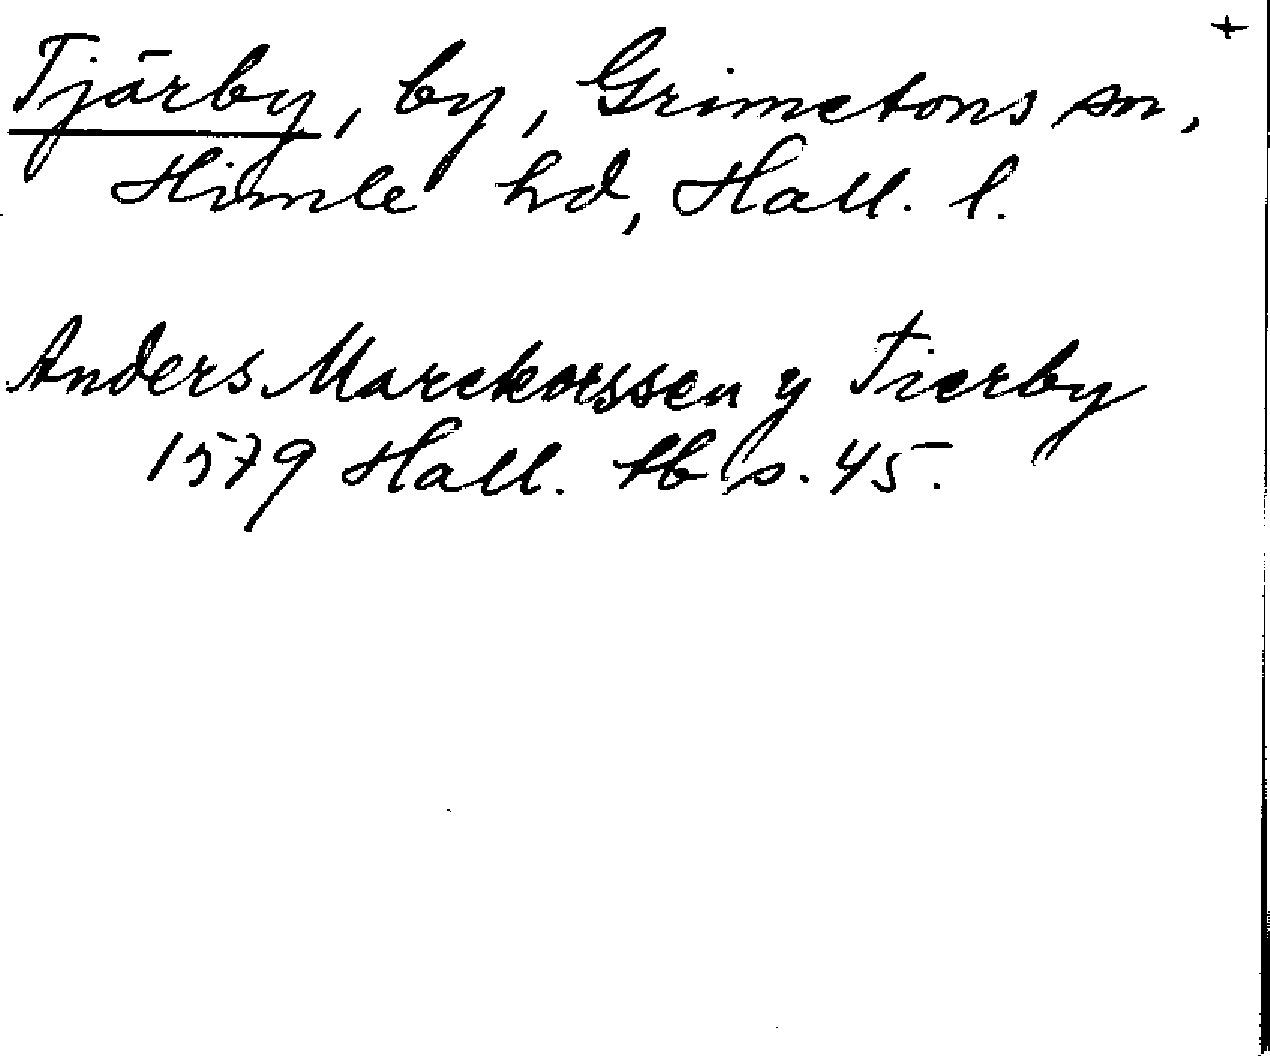 +
Tjärby, by, Grimetons sn,
Himle hd, Hall. l.
Anders Marckorssen y Tierby
1579 Hall. tb s. 45.